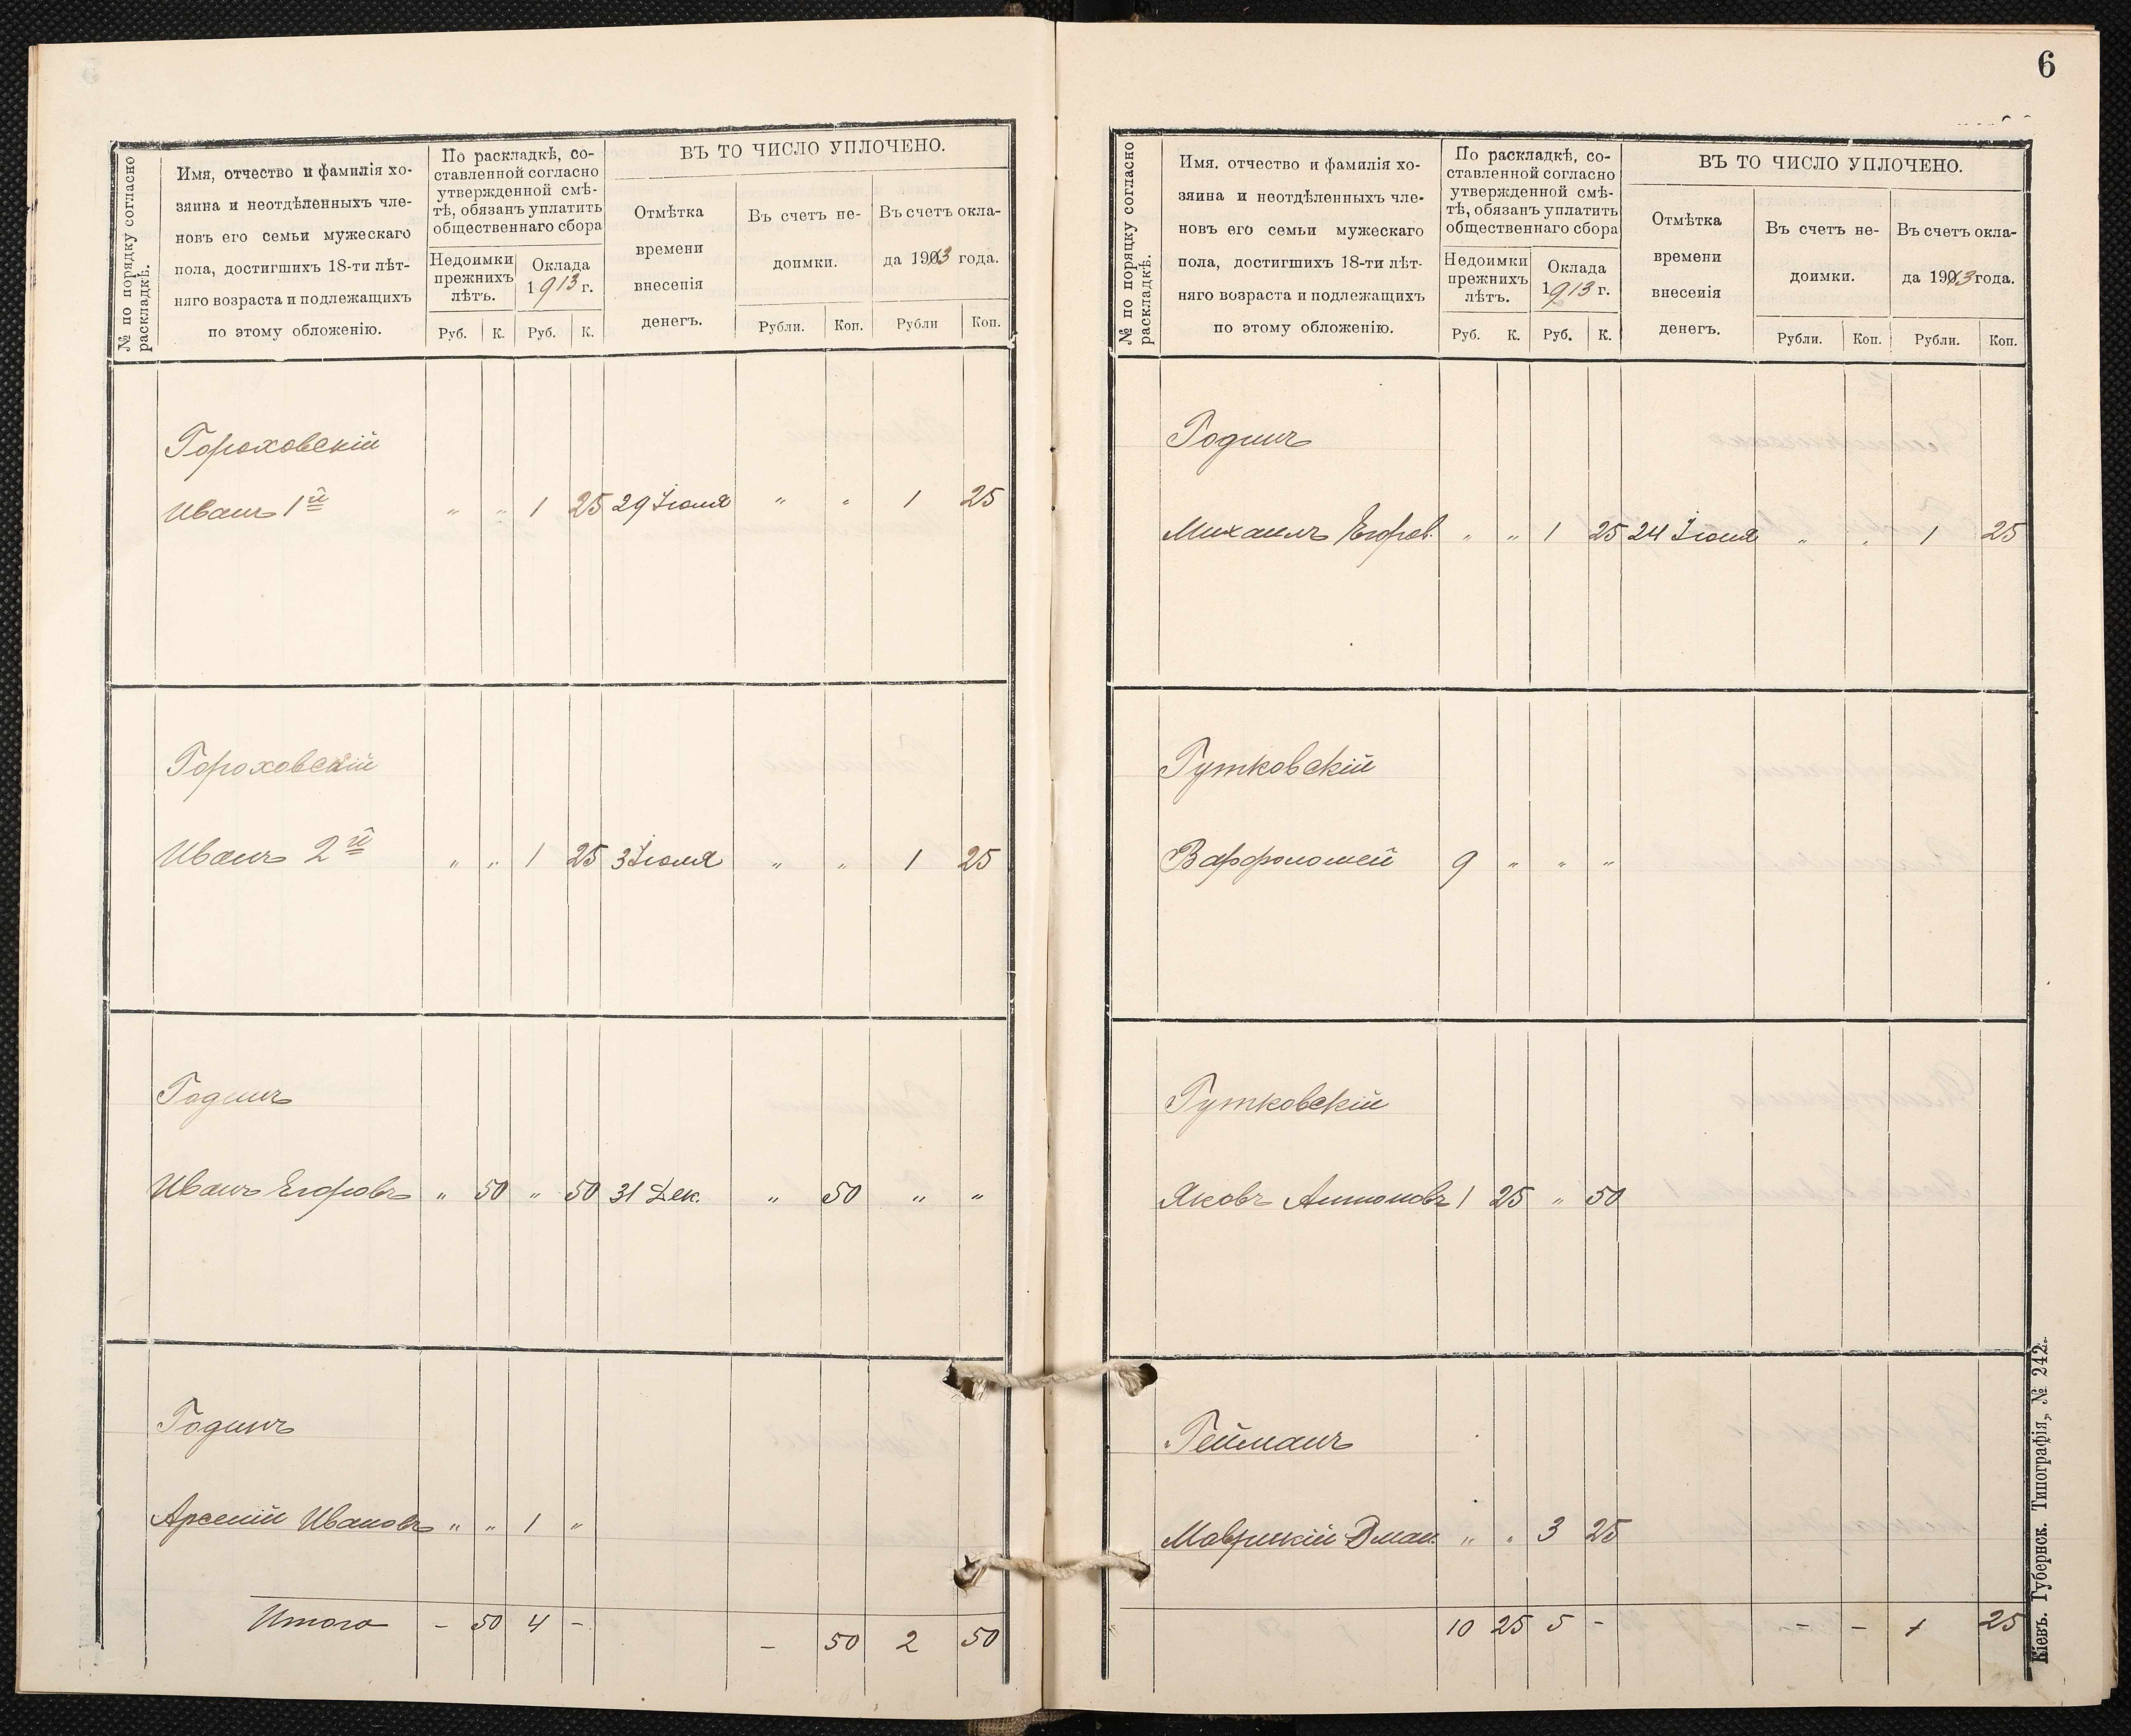 6
№ по порядку согласно
раскладкѣ.
Имя, отчество и фамилія хо-
зяина и неотдѣленныхъ чле-
новъ его семьи мужескаго
пола, достигшихъ 18-ти лѣт-
няго возраста и подлежащихъ
по этому обложенію.
По раскладкѣ, со-
ставленной согласно
утвержденной смѣ-
тѣ, обязанъ уплатить
общественнаго сбора
Недоимки
прежнихъ
лѣтъ.
Оклада
1913 г.
Руб. К. Руб. К.
ВЪ ТО ЧИСЛО УПЛОЧЕНО.
Отмѣтка
времени
внесенія
денегъ.
Въ счетъ не-
доимки.
Въ счетъ окла-
да 1913 года.
Рубли. Коп. Рубли Коп.
Гороховскій
Иванъ 1й " " 1 25 29 Іюля " " 1 25
Гороховскій
Иванъ 2й " " 1 25 3 Іюля " " 1 25
Годинъ
Иванъ Егоровъ " 50 " 50 31 Дек. " 50 " "
Годинъ
Арсеній Ивановъ " " 1 "
Итого - 50 4 - - 50 2 50
№ по порядку согласно
раскладкѣ.
Имя. отчество и фамилія хо-
зяина и неотдѣленныхъ чле-
новъ его семьи мужескаго
пола, достигшихъ 18-ти лѣт-
няго возраста и подлежащихъ
по этому обложенію.
По раскладкѣ, со-
ставленной согласно
утвержденной смѣ-
тѣ, обязанъ уплатить
общественнаго сбора
Недоимки
прежнихъ
лѣтъ.
Оклада
1913 г.
Руб. К. Руб. К.
ВЪ ТО ЧИСЛО УПЛОЧЕНО.
Отмѣтка
времени
внесенія
денегъ.
Въ счетъ не-
доимки.
Въ счетъ окла-
да 1913 года.
Рубли. Коп. Рубли. Коп.
Годинъ
Михаилъ Егоров. " " 1 25 24 Іюля " " 1 25
Гутковскій
Варфоломей 9 " " "
Гутковскій
Яковъ Антоновъ 1 25 " 50
Гейманъ
Маврикій " " 3 25
10 25 5 - - - 1 25
Кіевъ. Губернск. Типографія, № 242.